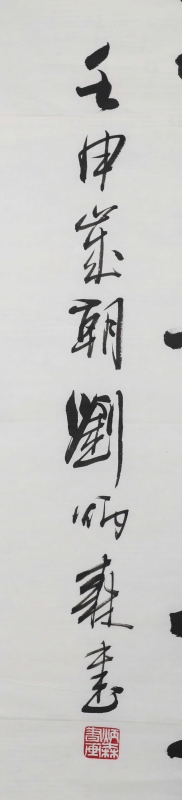 壬申岁朝刘炳森书
炳森书画